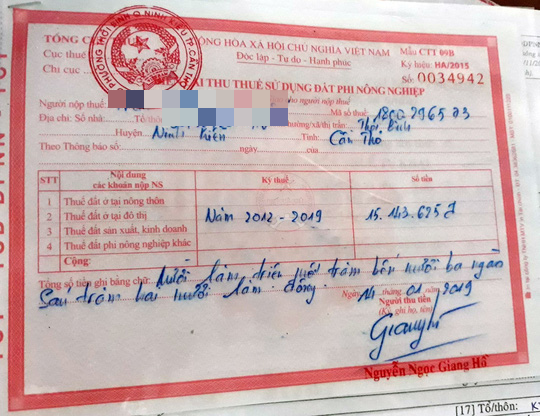 CỘNG HÒA XÃ HỘI CHỦ NGHĨA VIỆT NAM Mẫu CTT 09B
TỔNG CỤC
Độc lập - Tự do - Hạnh phúc Ký hiệu: HA/2015
Cục thuế
Chi cục Số: 0034942
THU THUẾ SỬ DỤNG ĐẤT PHI NÔNG NGHIỆP
Người nộp thuế: người nộp thuế
Mã số thuế:
Địa chỉ: Số nhà: Tổ/thôn phường/xã/thị trấn: Thới Bình
Huyện: Ninh Kiều Tỉnh: Cần Thơ
Theo Thông báo số: ngày của
STT Nội dung các khoản nộp NS Kỳ thuế Số tiền
1 Thuế đất ở tại nông thôn
2 Thuế đất ở tại đô thị Năm 2012 - 2019 15.143.625đ
3 Thuế đất sản xuất, kinh doanh
4 Thuế đất phi nông nghiệp khác
Cộng:
Tổng số tiền ghi bằng chữ: Mười lăm triệu một trăm bốn mươi ba ngàn
Sáu trăm hai mươi lăm đồng.
Ngày 14 tháng 01 năm 2019
Người thu tiền
(Ký, ghi họ, tên)
Nguyễn Ngọc Giang Hồ
[17] Tổ/thôn: